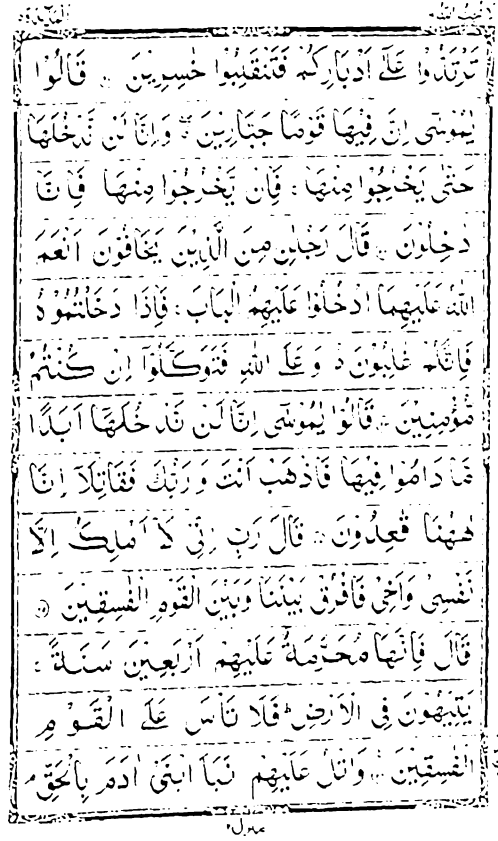 لا يحب الله ٦
المآئدة ٥
تَرْتَدُّوْا عَلٰٓى اَدْبَارِكُمْ فَتَنْقَلِبُوْا خٰسِرِيْنَ قَالُوْا
يٰمُوْسٰٓى اِنَّ فِيْهَا قَوْمًا جَبَّارِيْنَ ۖ وَاِنَّا لَنْ نَّدْخُلَهَا
حَتّٰى يَخْرُجُوْا مِنْهَا ۚ فَاِنْ يَّخْرُجُوْا مِنْهَا فَاِنَّا
دٰخِلُوْنَ قَالَ رَجُلٰنِ مِنَ الَّذِيْنَ يَخَافُوْنَ اَنْعَمَ
اللّٰهُ عَلَيْهِمَا ادْخُلُوْا عَلَيْهِمُ الْبَابَ ۚ فَاِذَا دَخَلْتُمُوْهُ
فَاِنَّكُمْ غٰلِبُوْنَ ۚ وَعَلَى اللّٰهِ فَتَوَكَّلُوْٓا اِنْ كُنْتُمْ
مُّؤْمِنِيْنَ قَالُوْا يٰمُوْسٰٓى اِنَّا لَنْ نَّدْخُلَهَآ اَبَدًا
مَّا دَامُوْا فِيْهَا فَاذْهَبْ اَنْتَ وَرَبُّكَ فَقَاتِلَآ اِنَّا
هٰهُنَا قٰعِدُوْنَ قَالَ رَبِّ اِنِّيْ لَآ اَمْلِكُ اِلَّا
نَفْسِيْ وَاَخِيْ فَافْرُقْ بَيْنَنَا وَبَيْنَ الْقَوْمِ الْفٰسِقِيْنَ
قَالَ فَاِنَّهَا مُحَرَّمَةٌ عَلَيْهِمْ اَرْبَعِيْنَ سَنَةً ۚ
يَتِيْهُوْنَ فِي الْاَرْضِ ؕ فَلَا تَاْسَ عَلَى الْقَوْمِ
الْفٰسِقِيْنَ وَاتْلُ عَلَيْهِمْ نَبَاَ ابْنَيْ اٰدَمَ بِالْحَقِّ ۘ
منزل٢